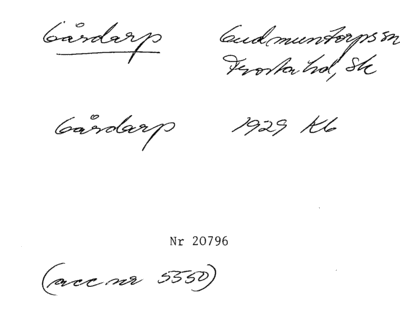 Gårdarp Gudmuntorps sn
Frosta hd, Sk
Gårdarp 1929 Kb
Nr 20796
(acc nr 5550)